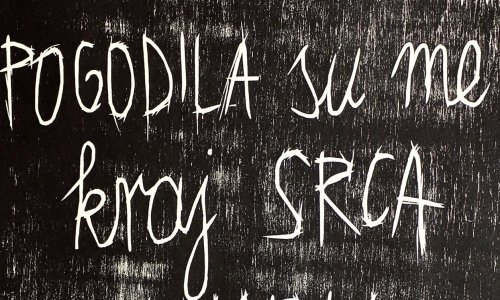 POGODILA su me
kraj SRCA